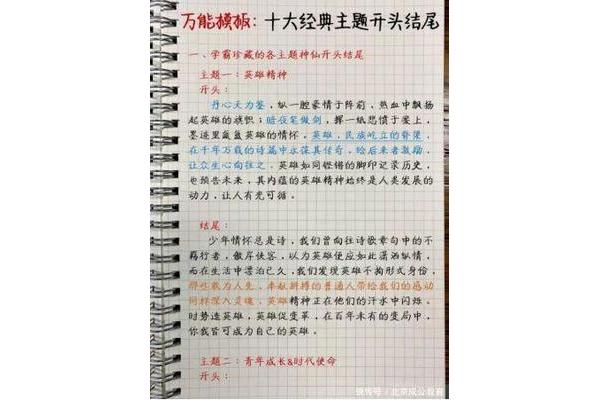 万能模板：十大经典主题开头结尾
一、学霸珍藏的各主题神仙开头结尾
主题一：英雄精神
开头：
丹心天为鉴，纵一腔豪情于阵前，热血中飘扬
起英雄的旗帜；暗夜笔做剑，挥一纸悲愤于案上，
墨迹里氤氲英雄的情怀。英雄，民族屹立的脊梁，
在千年万载的诗篇中永葆其传奇，给后来者激励，
让众生心向往之。英雄如同铿锵的脚印记录历史，
也预告未来，其内蕴的英雄精神始终是人类发展的
动力，让人有光可循。
结尾：
少年情怀总是诗，我们曾向往诗歌章句中的不
羁行者，傲岸侠客，以为英雄便应如此潇洒纵情，
而在生活中漂泊已久，我们发现英雄不拘形式身份，
那些敢为人生，奉献拼搏的普通人带给我们的感动
同样深入灵魂，英雄精神正在他们的汗水中闪烁。
时势造英雄，英雄促变革，在百年未有的变局中，
你我皆可成为自己的英雄。
主题二：青年成长&时代使命
开头：
搜狐号/北京成公教育